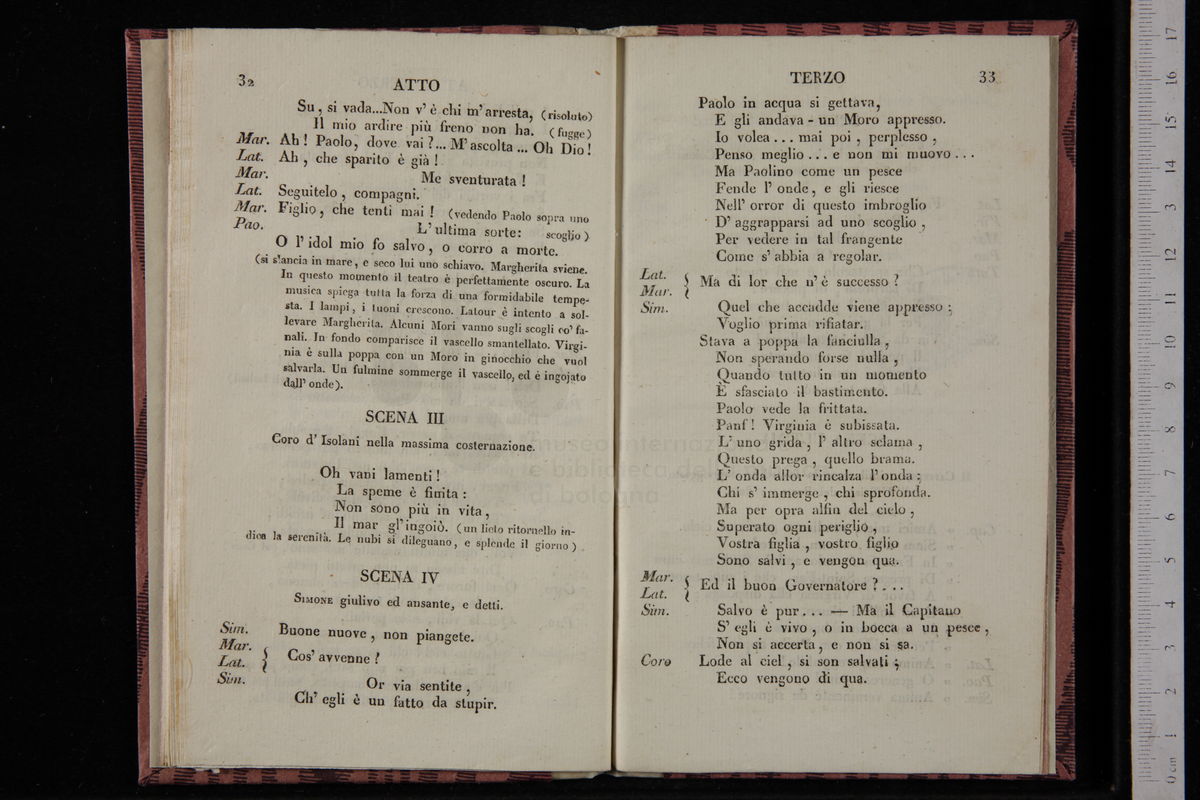 32
ATTO
Su, si vada...Non v' è chi m' arresta, (risoluto)
Il mio ardire più freno non ha. (fugge)
Mar. Ah! Paolo, dove vai?... M' ascolta ... Oh Dio!
Lat. Ah, che sparito è già!
Mar. Me sventurata!
Lat. Seguitelo, compagni.
Mar. Figlio, che tenti mai! (vedendo Paolo sopra uno
Pao. L' ultima sorte: scoglio)
O l' idol mio fo salvo, o corro a morte.
(si slancia in mare, e seco lui uno schiavo. Margherita sviene.
In questo momento il teatro è perfettamente oscuro. La
musica spiega tutta la forza di una formidabile tempe-
sta. I lampi, i tuoni crescono. Latour è intento a sol-
levare Margherita. Alcuni Mori vanno sugli scogli co' fa-
nali. In fondo comparisce il vascello smantellato. Virgi-
nia è sulla poppa con un Moro in ginocchio che vuol
salvarla. Un fulmine sommerge il vascello, ed è ingojato
dall' onde).
SCENA III
Coro d' Isolani nella massima costernazione.
Oh vani lamenti!
La speme è finita:
Non sono più in vita,
Il mar gl' ingoiò. (un lieto ritornello in-
dica la serenità. Le nubi si dileguano, e splende il giorno)
SCENA IV
SIMONE giulivo ed ansante, e detti.
Sim. Buone nuove, non piangete.
Mar.
Lat. } Cos' avvenne?
Sim. Or via sentite,
Ch' egli è un fatto da stupir.
TERZO
33
Paolo in acqua si gettava,
E gli andava - un Moro appresso.
Io volea ... mai poi, perplesso,
Penso meglio ... e non mi muovo ...
Ma Paolino come un pesce
Fende l' onde, e gli riesce
Nell' orror di questo imbroglio
D' aggrapparsi ad uno scoglio,
Per vedere in tal frangente
Come s' abbia a regolar.
Lat.
Mar. { Ma di lor che n' è successo?
Sim. Quel che accadde viene appresso;
Voglio prima rifiatar.
Stava a poppa la fanciulla,
Non sperando forse nulla,
Quando tutto in un momento
È sfasciato il bastimento.
Paolo vede la frittata.
Panf! Virginia è subissata.
L' uno grida, l' altro sclama,
Questo prega, quello brama.
L' onda allor rincalza l' onda;
Chi s' immerge, chi sprofonda.
Ma per opra alfin del cielo,
Superato ogni periglio,
Vostra figlia, vostro figlio
Sono salvi, e vengon qua.
Mar.
Lat. { Ed il buon Governatore?...
Sim. Salvo è pur... — Ma il Capitano
S' egli è vivo, o in bocca a un pesce,
Non si accerta, e non si sa.
Coro Lode al ciel, si son salvati;
Ecco vengono di qua.
0 cm 1 2 3 4 5 6 7 8 9 10 11 12 13 14 15 16 17